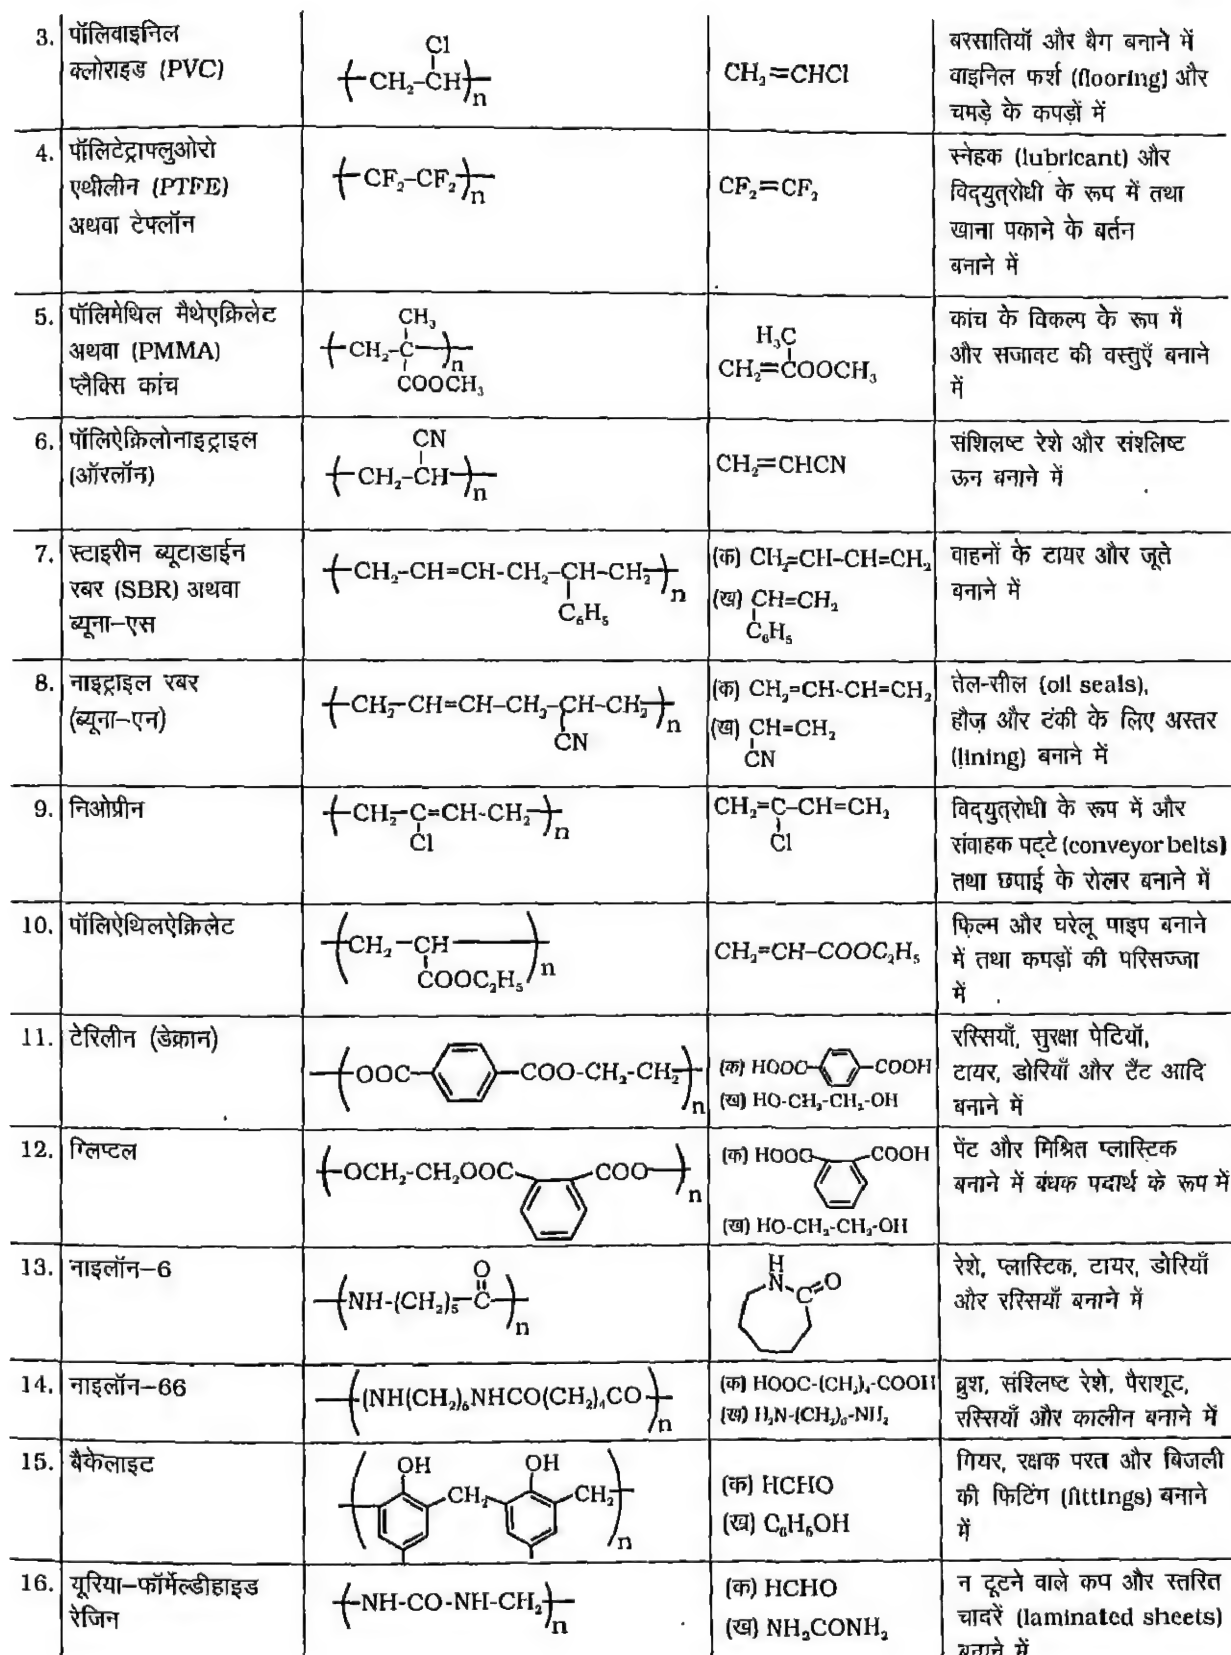 3. पॉलिवाइनिल
क्लोराइड (PVC)
Cl
(CH₂-CH)n
CH₂=CHCl
बरसातियॉ और बैग बनाने में
वाइनिल फर्श (flooring) और
चमड़े के कपड़ों में
4. पॉलिटेट्राफ्लुओरो
एथीलीन (PTFE)
अथवा टेफ्लॉन
(CF₂-CF₂)n
CF₂=CF₂
स्नेहक (lubricant) और
विद्युत्‌रोधी के रूप में तथा
खाना पकाने के बर्तन
बनाने में
5. पॉलिमेथिल मैथेएक्रिलेट
अथवा (PMMA)
प्लैक्सि कांच
CH₃
(CH₂-C)n
COOCH₃
H₃C
CH₂=COOCH₃
कांच के विकल्प के रूप में
और सजावट की वस्तुएँ बनाने
में
6. पॉलिऐक्रिलोनाइट्राइल
(ऑरलॉन)
CN
(CH₂-CH)n
CH₂=CHCN
संशिलष्ट रेशे और संश्लिष्ट
ऊन बनाने में
7. स्टाइरीन ब्यूटाडाईन
रबर (SBR) अथवा
ब्यूना–एस
(CH₂-CH=CH-CH₂-CH-CH₂)n
C₆H₅
(क) CH₂=CH-CH=CH₂
(ख) CH=CH₂
C₆H₅
वाहनों के टायर और जूते
बनाने में
8. नाइट्राइल रबर
(ब्यूना–एन)
(CH₂-CH=CH-CH₂-CH-CH₂)n
CN
(क) CH₂=CH-CH=CH₂
(ख) CH=CH₂
CN
तेल-सील (oil seals),
हौज़ और टंकी के लिए अस्तर
(lining) बनाने में
9. निओप्रीन
(CH₂-C=CH-CH₂)n
Cl
CH₂=C-CH=CH₂
Cl
विद्युत्‌रोधी के रूप में और
संवाहक पट्टे (conveyor belts)
तथा छपाई के रोलर बनाने में
10. पॉलिऐथिलऐक्रिलेट
(CH₂-CH)n
COOC₂H₅
CH₂=CH-COOC₂H₅
फ़िल्म और घरेलू पाइप बनाने
में तथा कपड़ों की परिसज्जा
में
11. टेरिलीन (डेक्रान)
(OOC-COO-CH₂-CH₂)n
(क) HOOC-COOH
(ख) HO-CH₂-CH₂-OH
रस्सियाँ, सुरक्षा पेटियॉ,
टायर, डोरियाँ और टैंट आदि
बनाने में
12. ग्लिप्टल
(OCH₂-CH₂OOC COO)n
(क) HOOC COOH
(ख) HO-CH₂-CH₂-OH
पेंट और मिश्रित प्लास्टिक
बनाने में बंधक पदार्थ के रूप में
13. नाइलॉन–6
O
(NH-(CH₂)₅-C)n
H
N-C=O
रेशे, प्लास्टिक, टायर, डोरियाँ
और रस्सियाँ बनाने में
14. नाइलॉन–66
((NH(CH₂)₆NHCO(CH₂)₄CO)n
(क) HOOC-(CH₂)₄-COOH
(ख) H₂N-(CH₂)₆-NH₂
ब्रुश, संश्लिष्ट रेशे, पैराशूट,
रस्सियाँ और कालीन बनाने में
15. बैकेलाइट
OH OH
(CH₂ CH₂)n
(क) HCHO
(ख) C₆H₅OH
गियर, रक्षक परत और बिजली
की फिटिंग (fittings) बनाने
में
16. यूरिया–फॉर्मेल्डीहाइड
रेजिन
(NH-CO-NH-CH₂)n
(क) HCHO
(ख) NH₂CONH₂
न टूटने वाले कप और स्तरित
चादरें (laminated sheets)
बनाने में